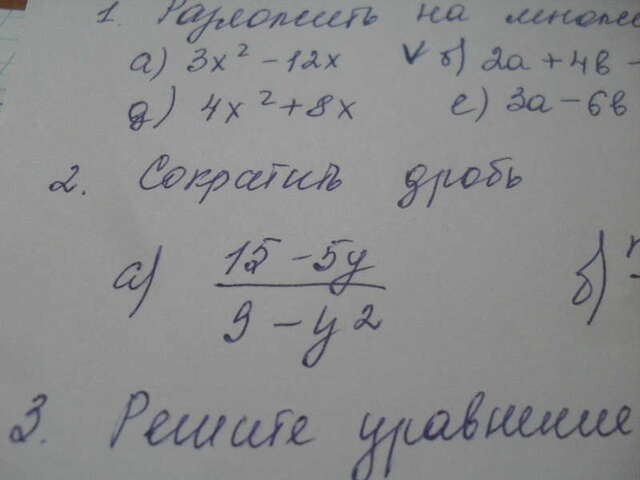 1. Разложить на множи
а) 3x² - 12x ✓ б) 2a + 4в -
д) 4x² + 8x е) 3a - 6в
2. Сократить дробь
а) 15 - 5y б)
9 - y2
3. Решите уравнение